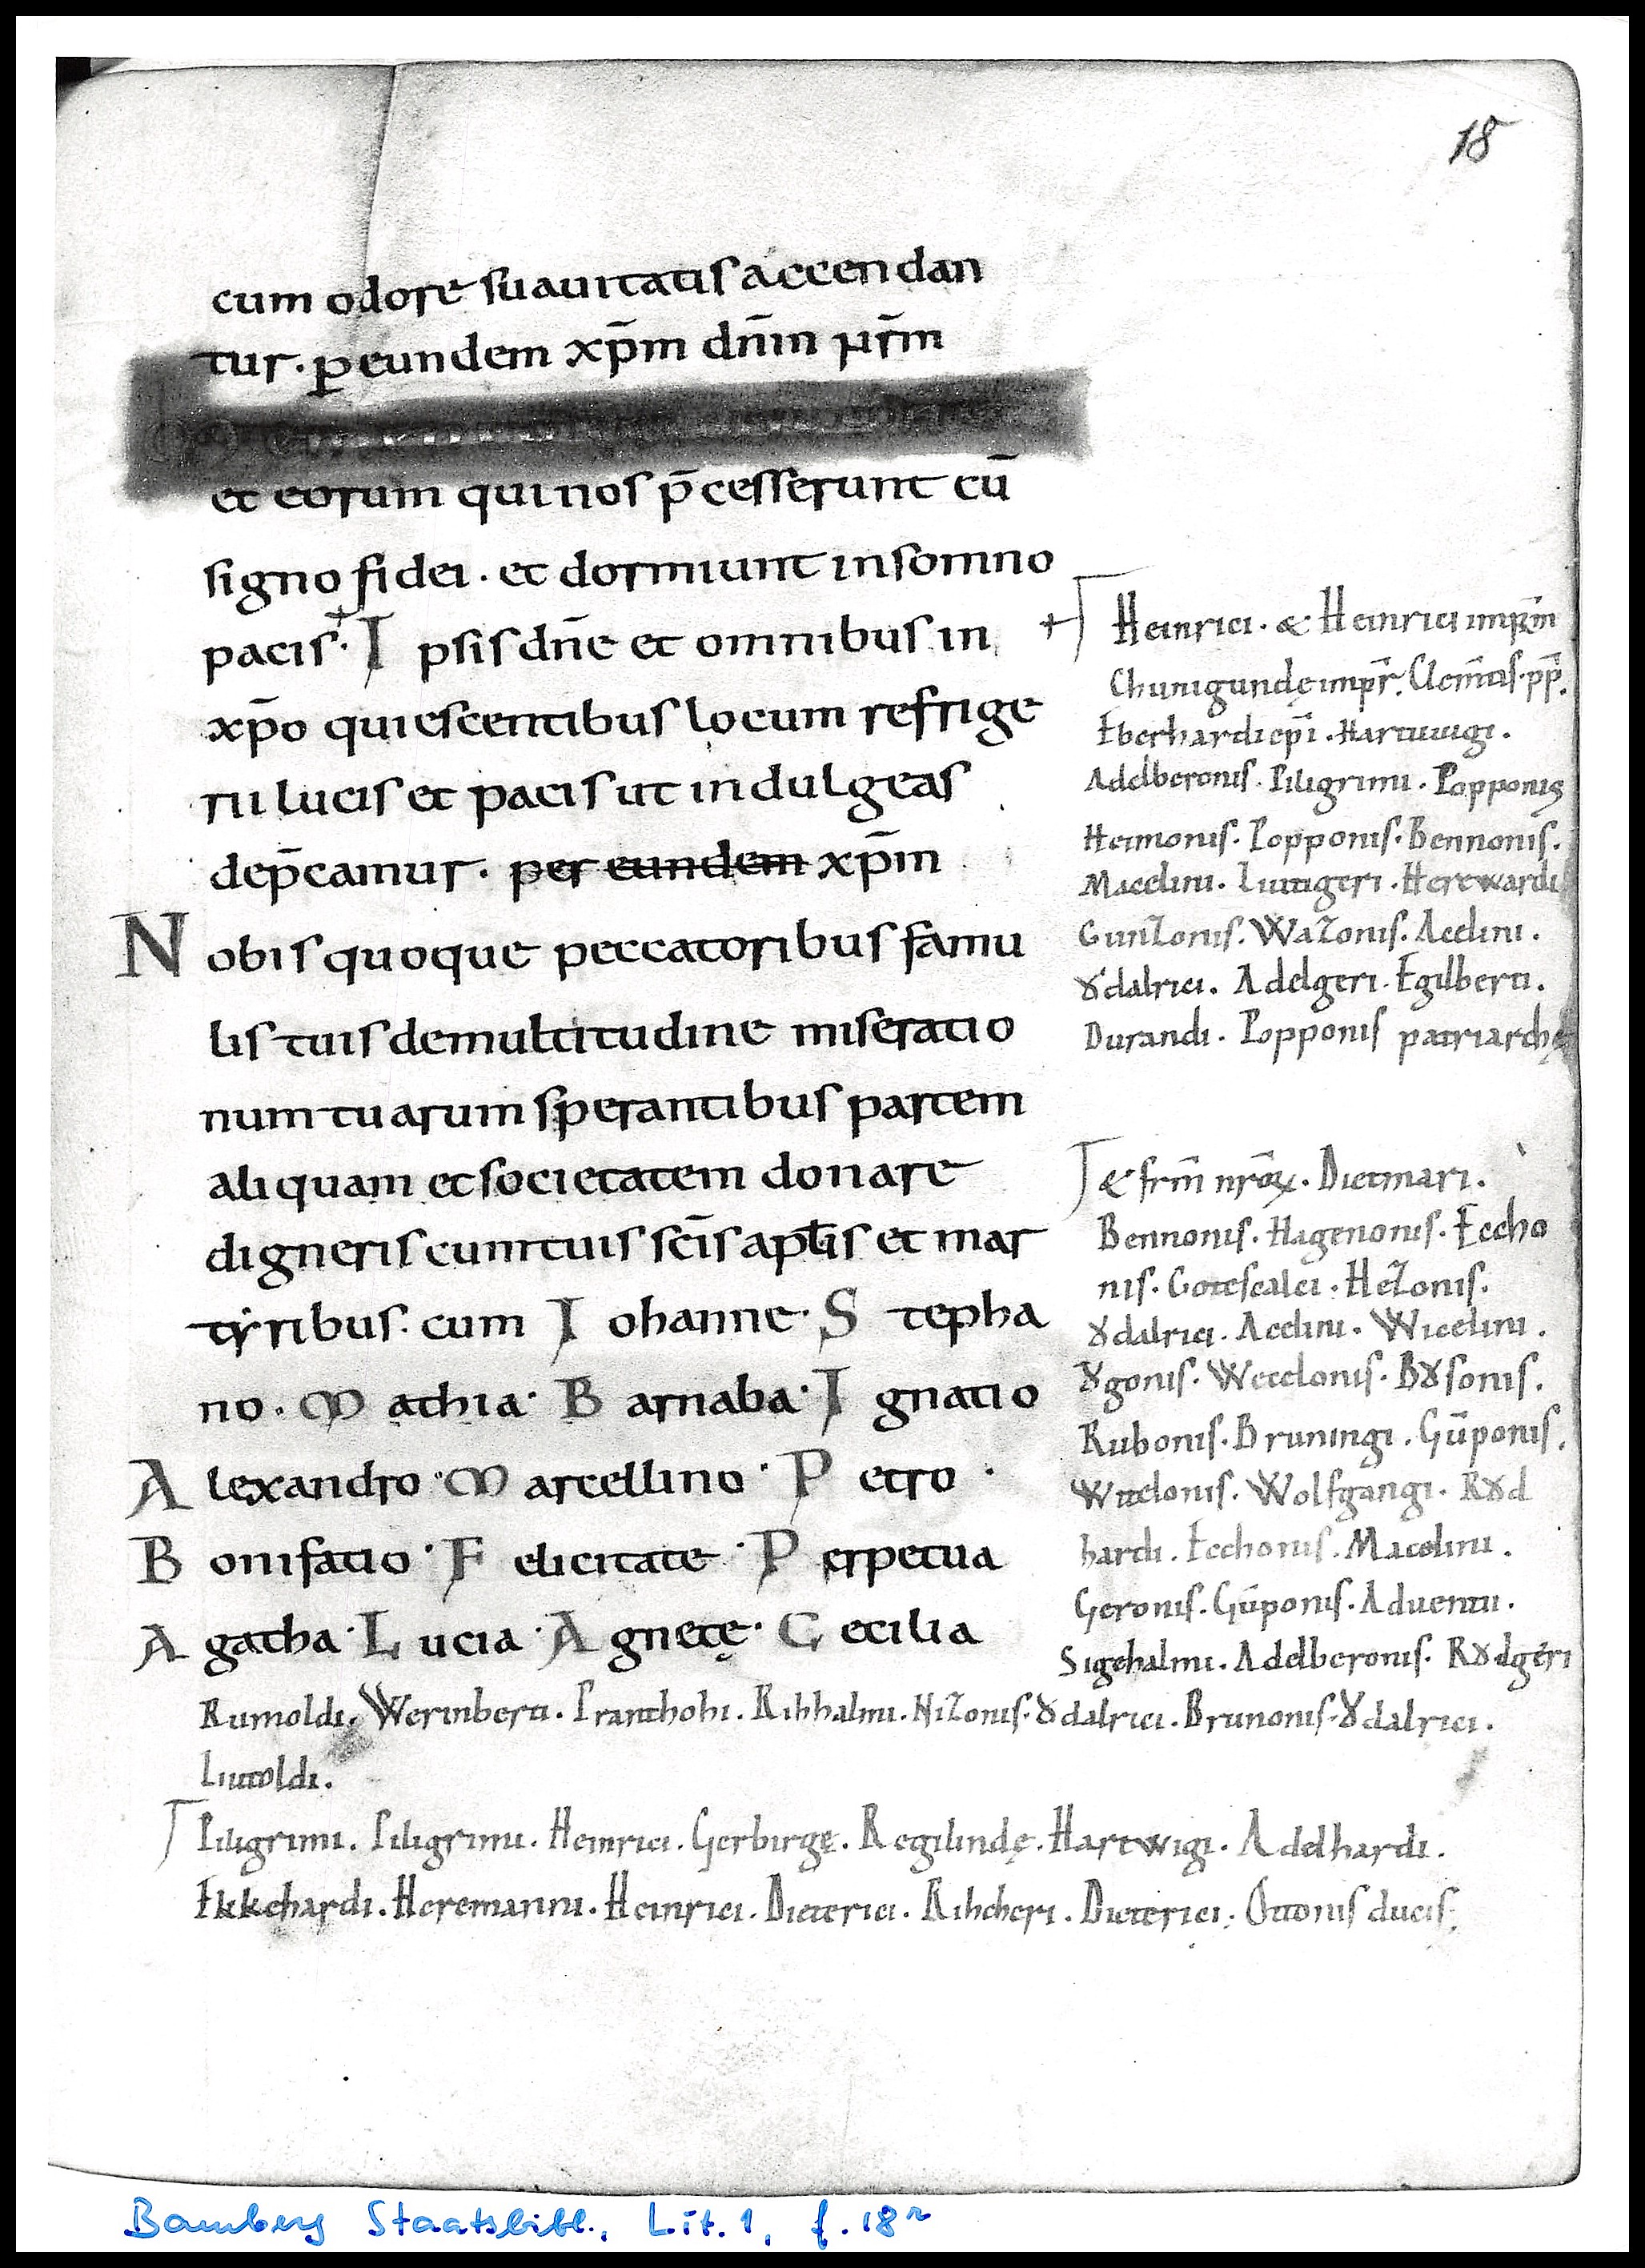 18
cum odore suauitatis accendan
tur. ꝑ eundem xp̄m dn̄m nr̄m
et eorum qui nos p̄cesserunt cū
signo fidei. et dormiunt in somno
pacis. Ipsis dn̄e et omnibus in
xp̄o quiescentibus locum refrige
rii lucis et pacis ut indulgeas
dep̄camur. per eundem xp̄m
Nobis quoque peccatoribus famu
lis tuis de multitudine miseratio
num tuarum sperantibus partem
aliquam et societatem donare
digneris cum tuis sc̄is aplīs et mar
tẏribus. cum Iohanne. Stepha
no. Mathia. Barnaba. Ignatio
Alexandro. Marcellino. Petro.
Bonifatio. Felicitate. Perpetua
Agatha. Lucia. Agnetę. Cecilia
+ Heinrici. & Heinrici imp̄m
Chunigundę imp̄r. Clem̄tis. pp̄.
Eberhardi ep̄i. Hartuuigi.
Adelberonis. Piligrimi. Popponis
Heimonis. Popponis. Bennonis.
Macelini. Liutigeri. Herewardi
Gunzonis. Wazonis. Acelini.
Ȣdalrici. Adelgeri. Egilberti.
Durandi. Popponis patriarchę
& frm̄ nr̄oꝝ. Dietmari.
Bennonis. Hagenonis. Eccho
nis. Gotescalci. Hezonis.
Ȣdalrici. Acelini. Wicelini.
Ȣgonis. Wecelonis. Bȣsonis.
Rubonis. Bruningi. Gūponis.
Witelonis. Wolfgangi. Rȣd
hardi. Ecchonis. Macelini.
Geronis. Gūponis. Aduentii.
Sigehalmi. Adelberonis. Rȣdgeri
Rumoldi. Werinberti. Franchohi. Rihhalmi. Nizonis. Ȣdalrici. Brunonis. Ȣdalrici.
Liutoldi.
Piligrimi. Piligrimi. Heinrici. Gerbirgę. Regilindę. Hartwigi. Adelhardi.
Ekkehardi. Heremanni. Heinrici. Dieterici. Rihcheri. Dieterici. Ottonis ducis.
Bamberg Staatsbibl., Lit. 1, f. 18r